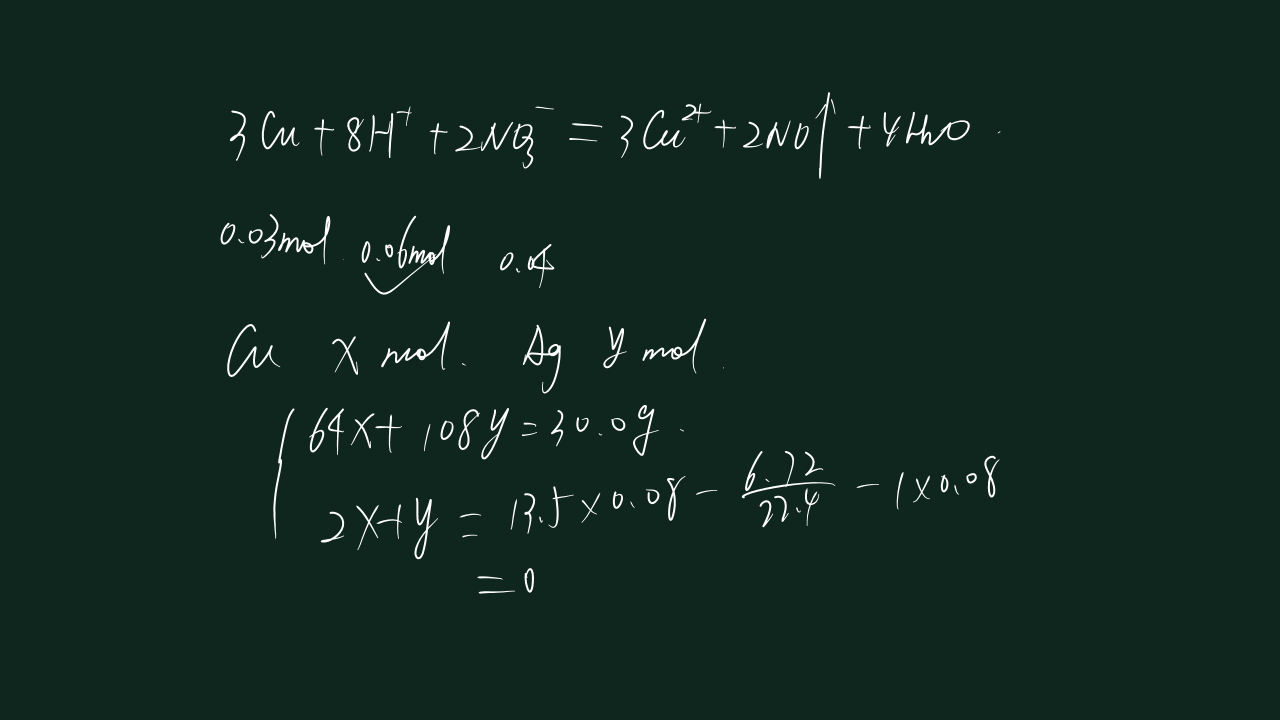 3Cu+8H⁺+2NO₃⁻=3Cu²⁺+2NO↑+4H₂O.
0.03mol 0.06mol 0.04
Cu x mol. Ag y mol.
64x+108y=30.0g.
2x+y=13.5×0.08-6.72/22.4-1×0.08
=0